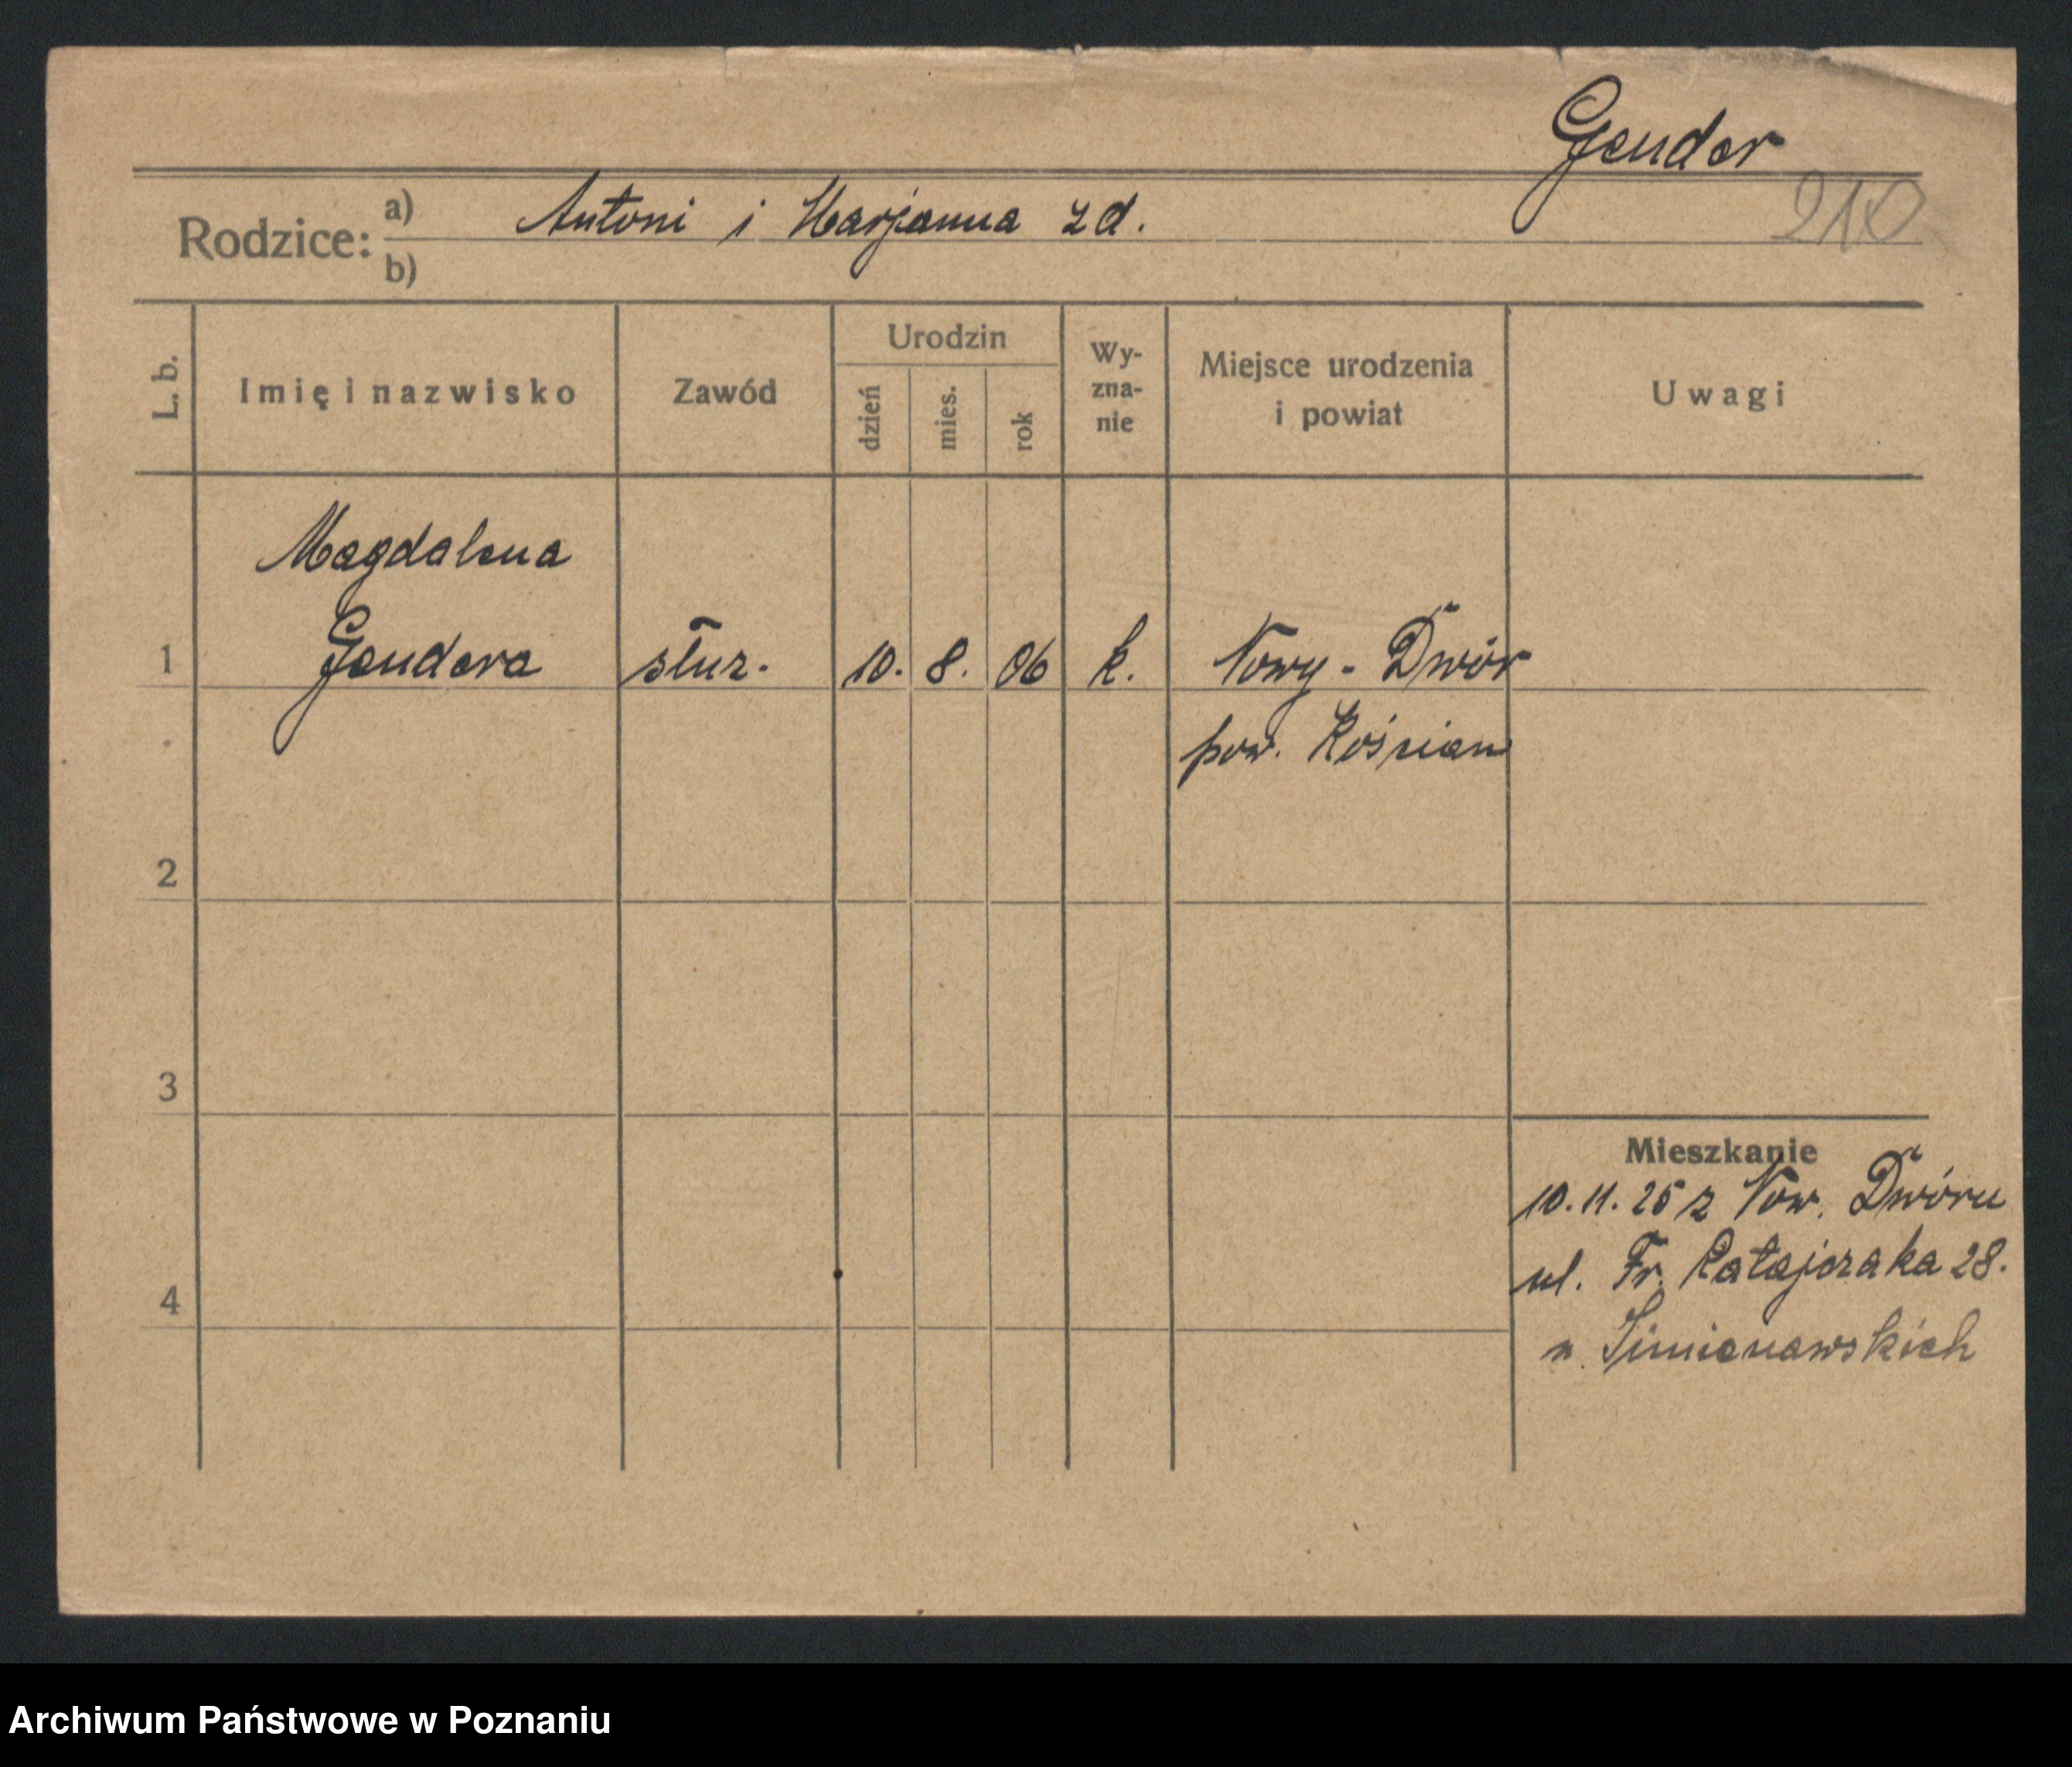 Gender
210
Rodzice: a) Antoni i Marjanna zd.
b)
L. b. Imię i nazwisko Zawód Urodzin dzień mies. rok Wy-zna-nie Miejsce urodzenia i powiat Uwagi
Magdalena
1 Gendera służ. 10. 8. 06 k. Nowy-Dwór
pow. Kościan
2
3
Mieszkanie
10. 11. 25 z Now. Dwóru
ul. Fr. Ratajczaka 28.
4
Archiwum Państwowe w Poznaniu